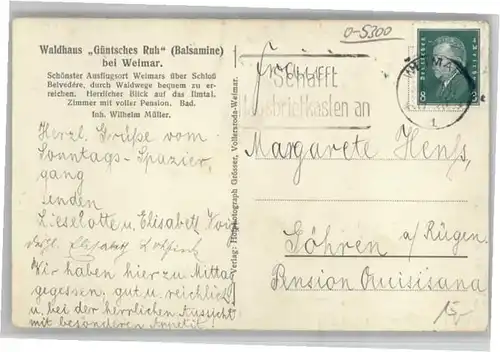 Waldhaus „Güntsches Ruh" (Balsamine)
bei Weimar.
Schönster Ausflugsort Weimars über Schloß
Belvedère, durch Waldwege bequem zu er-
reichen. Herrlicher Blick auf das Ilmtal.
Zimmer mit voller Pension. Bad.
Inh. Wilhelm Müller.
Herzl. Grüße vom
Sonntags-Spazier
gang
senden
Lieselotte u. Elisabeth
Wir haben hier zu Mittag
gegessen, gut u. reichlich
u. bei der herrlichen Aussicht
mit besonderen Appetit!
Verlag: Hofphotograph Grösser, Vollersroda-Weimar.
0-5300
Schafft
Hausbriefkasten an
WEIMAR
1
8 8
Frau
Margarete Henß,
Göhren a/Rügen.
Pension